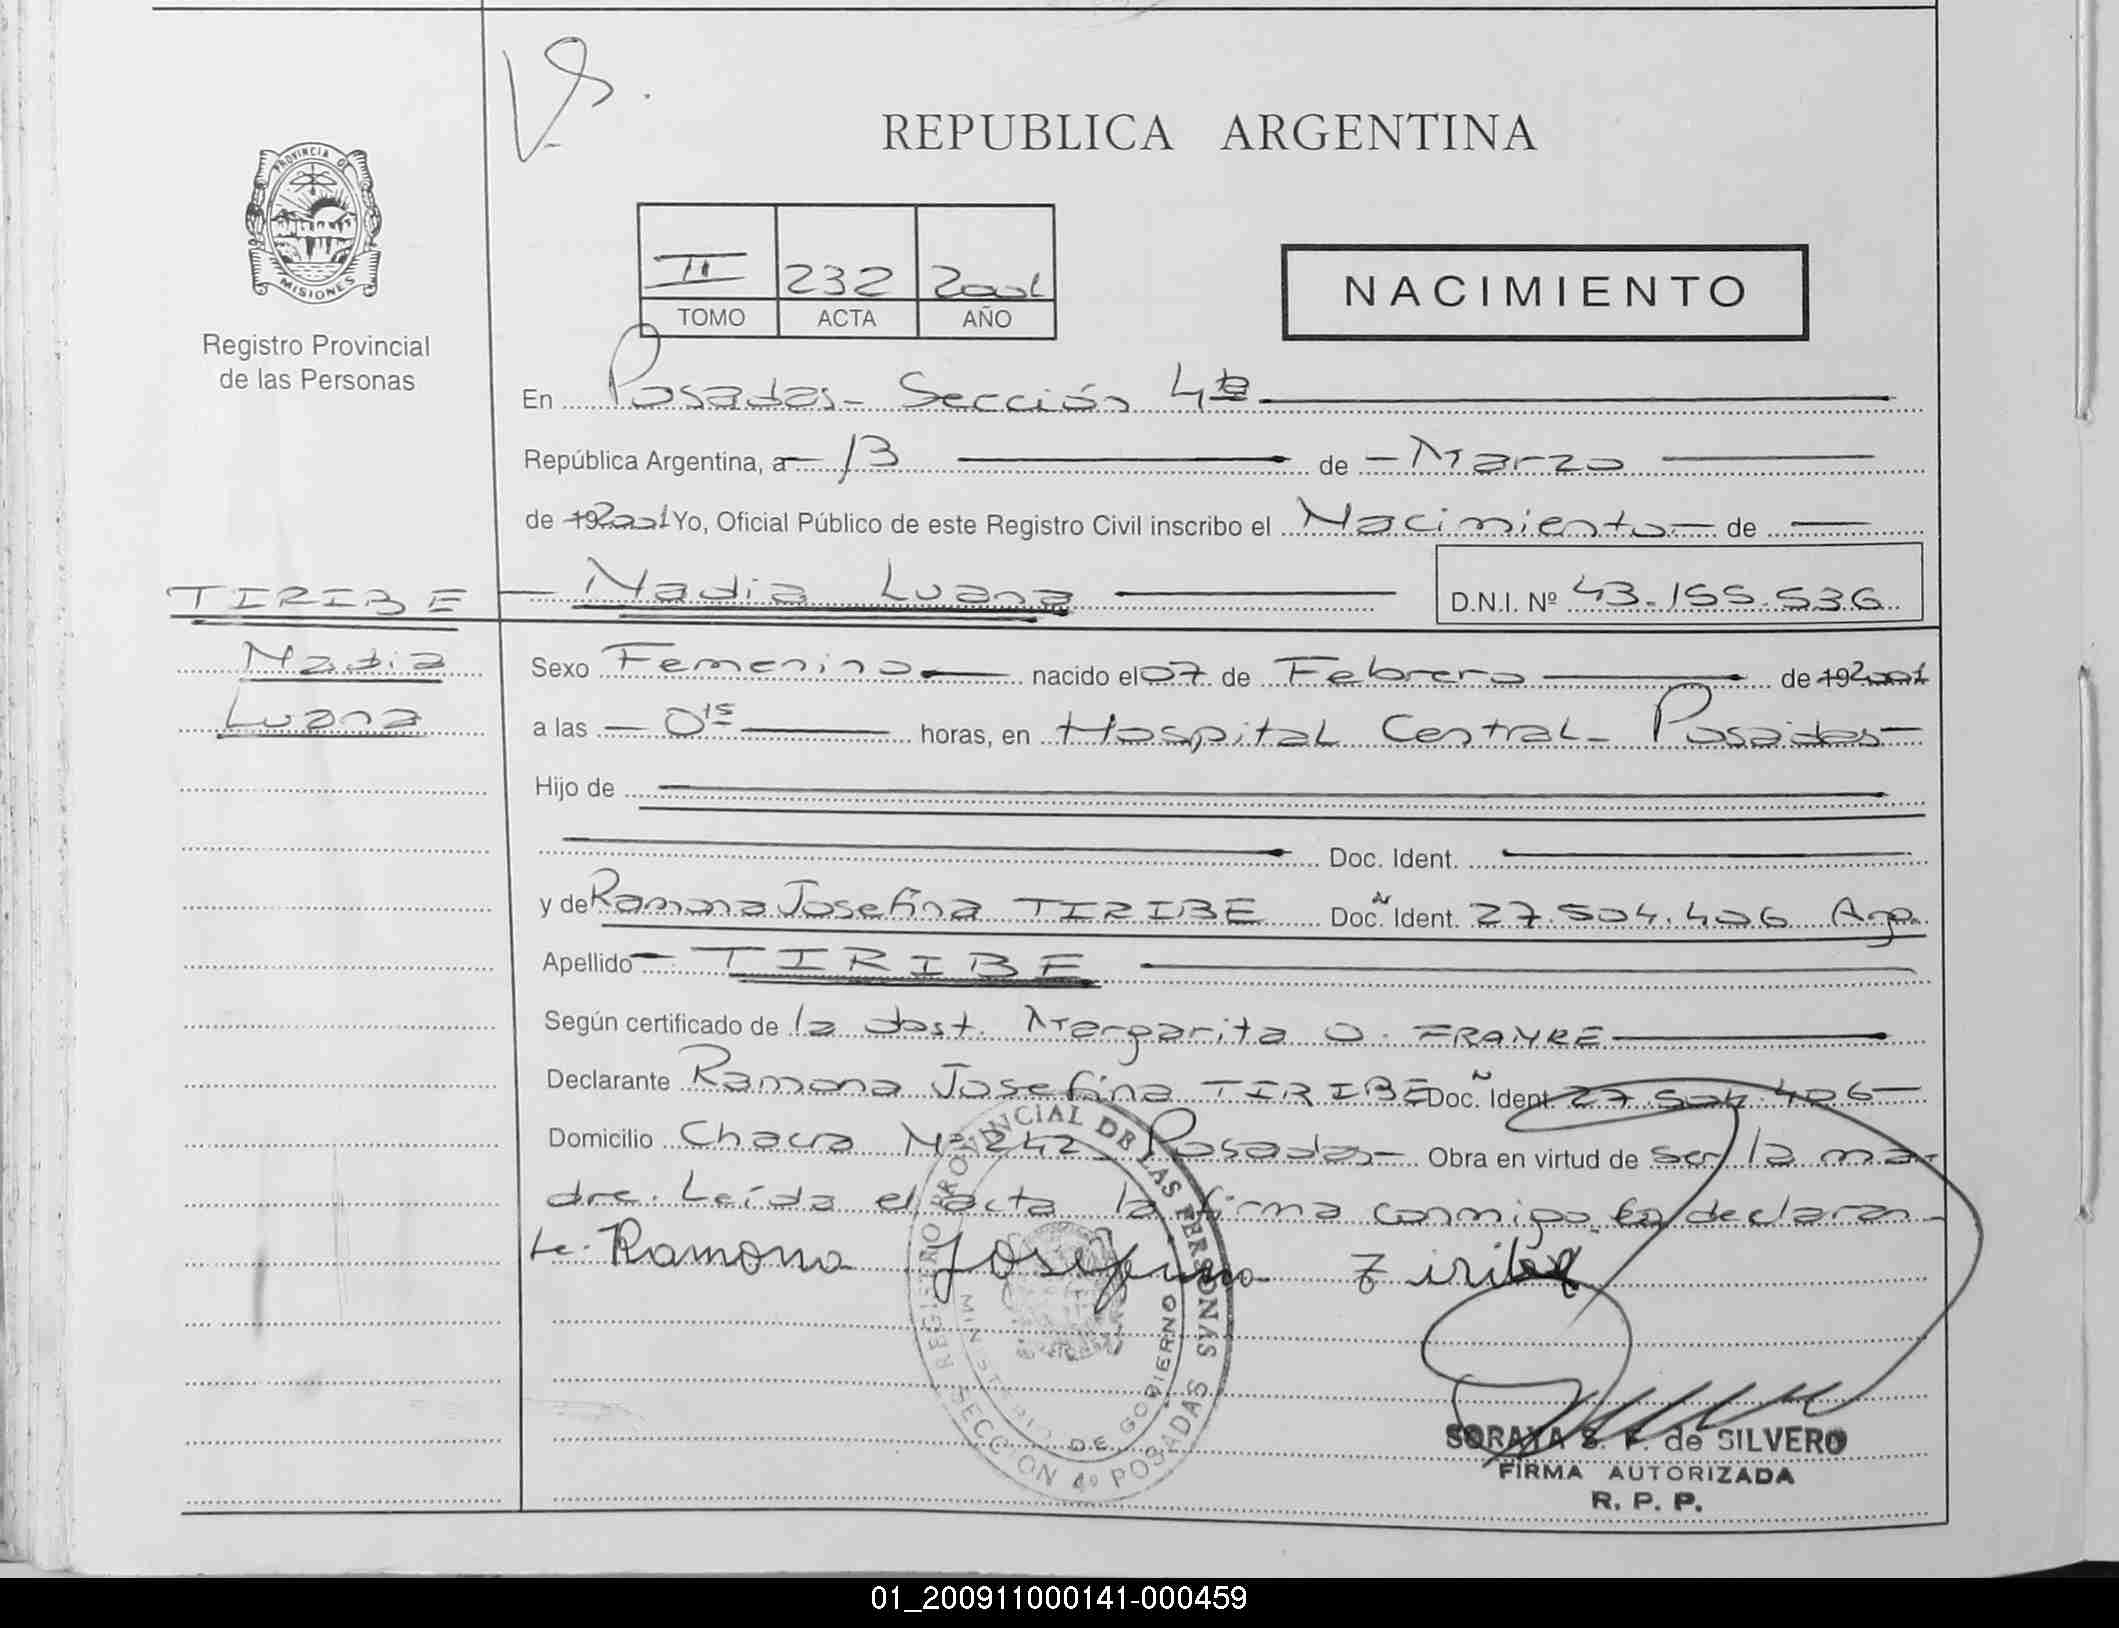 Vs.
PROVINCIA D
MISIONES
Registro Provincial
de las Personas
REPUBLICA ARGENTINA
II 232 2001
TOMO ACTA AÑO
NACIMIENTO
En Posadas- Sección 4ta
República Argentina, a 13 de Marzo
de 192001 Yo, Oficial Público de este Registro Civil inscribo el Nacimiento de
TIRIBE Nadia Luana D.N.I. Nº 43.155.536
Nadia
Luana
Sexo Femenino nacido el 07 de Febrero de 192001
a las 0 15 horas, en Hospital Central- Posadas
Hijo de
Doc. Ident.
y de Ramona Josefina TIRIBE Doc. Ident. 27.504.406 Arg.
Apellido TIRIBE
Según certificado de la obst. Margarita O. FRAYRE
Declarante Ramona Josefina TIRIBE Doc. Ident. 27.504.406
Domicilio Chacra Nº 242 Posadas Obra en virtud de ser la ma-
dre. Leída el acta la firma conmigo la declaran-
te. Ramona Josefina Tiribe
REGISTRO PROVINCIAL DE LAS PERSONAS
MINISTERIO DE GOBIERNO
SECCION 4º POSADAS
SORAYA S. F. de SILVERO
FIRMA AUTORIZADA
R. P. P.
01_200911000141-000459